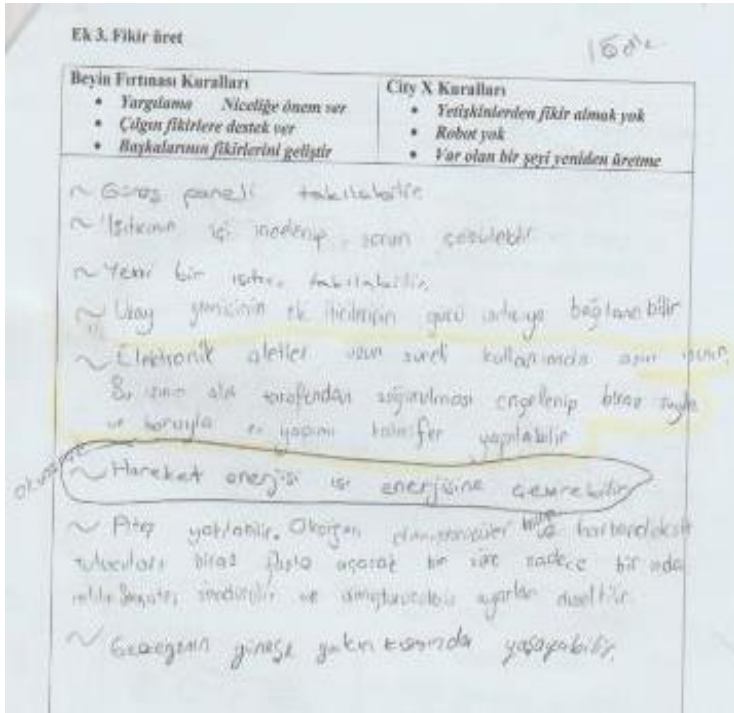 Ek 3. Fikir üret
Beyin Fırtınası Kuralları
• Yargılama Niceliğe önem ver
• Çılgın fikirlere destek ver
• Başkalarının fikirlerini geliştir
City X Kuralları
• Yetişkinlerden fikir almak yok
• Robot yok
• Var olan bir şeyi yeniden üretme
~ Güneş paneli takılabilir
~ Isıtıcının içi incelenip sorun çözülebilir
~ Yeni bir ısıtıcı takılabilir.
~ Uzay gemisinin ek gücü ısıtıcıya bağlanabilir
~ Elektronik aletler uzun süreli kullanımda aşırı ısınır.
Bu ısının alet tarafından soğurulması engellenip biraz suyla
ve boruyla ev yapımı kalorifer yapılabilir
~ Hareket enerjisi ısı enerjisine çevirebilir
~ Ateş yakılabilir. Oksijen karbondioksit
tutucuları biraz fazla açarak bir süre sadece bir odada
ve ayarları düzeltilir.
~ Gezegenin güneşe yakın kısmında yaşayabilir.